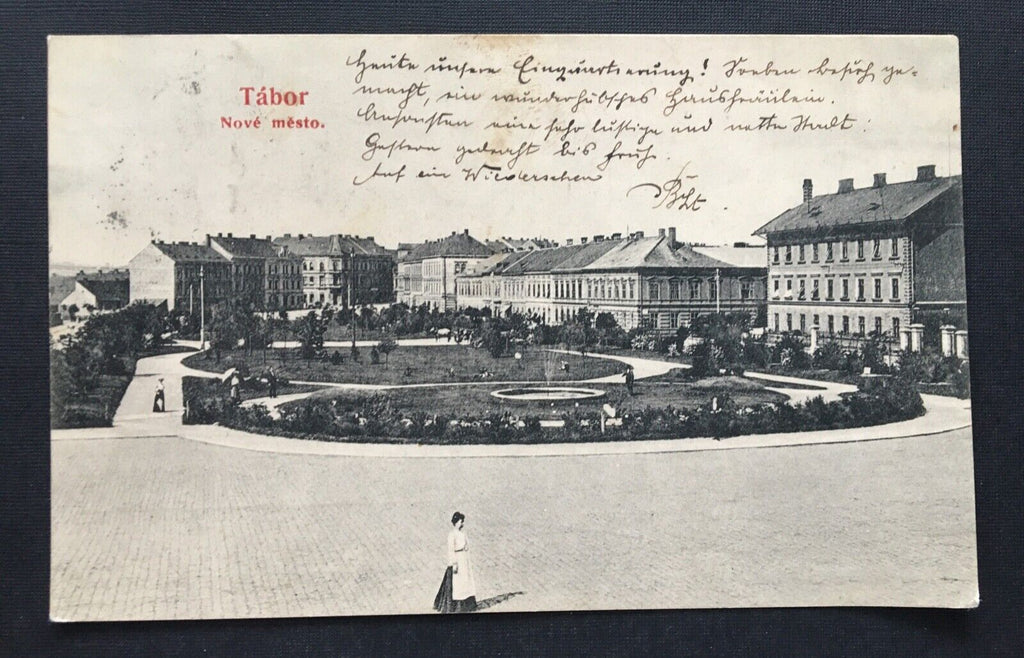 Tábor
Nové město.
Heute unsere Einquartierung! Soeben besuch ge-
macht, ein wunderhübsches Hausfräulein.
Ansonsten eine sehr lustige und nette Stadt.
Gestern gedracht bis früh.
Auf ein Wiedersehen